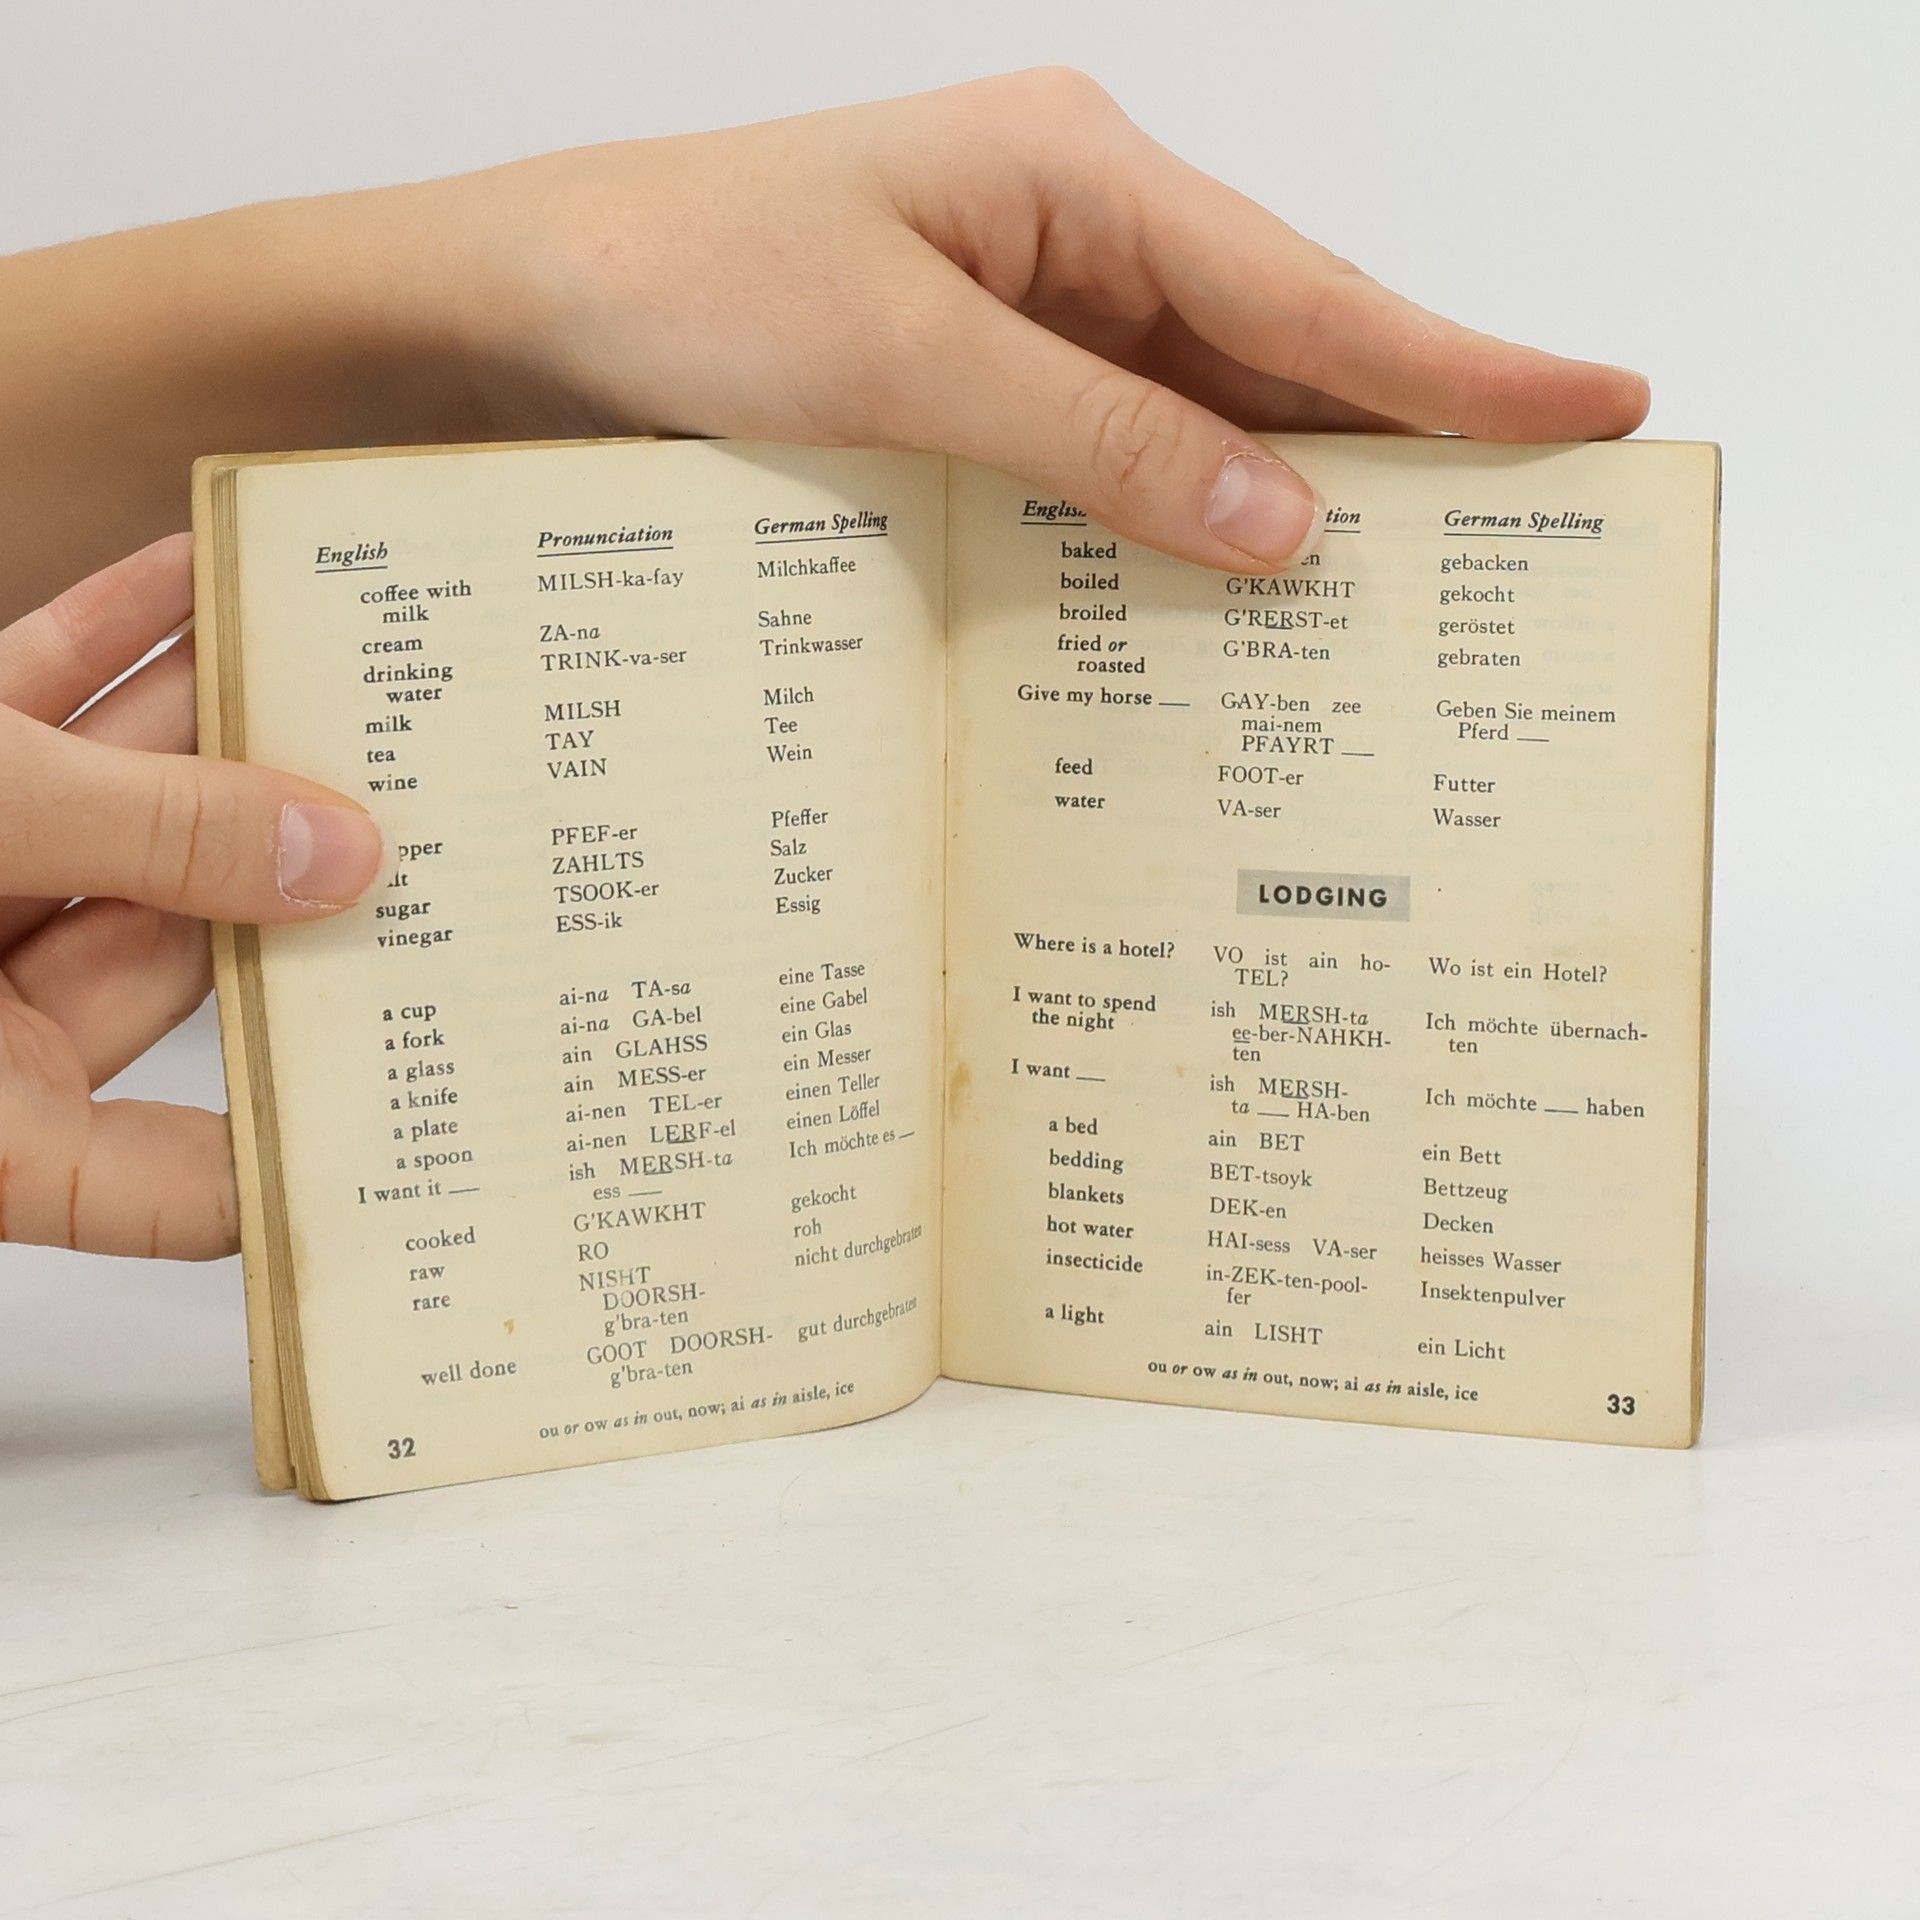 English Pronunciation German Spelling
coffee with MILSH-ka-fay Milchkaffee
milk
cream ZA-na Sahne
drinking TRINK-va-ser Trinkwasser
water
milk MILSH Milch
tea TAY Tee
wine VAIN Wein
PFEF-er Pfeffer
ZAHLTS Salz
sugar TSOOK-er Zucker
vinegar ESS-ik Essig
a cup ai-na TA-sa eine Tasse
a fork ai-na GA-bel eine Gabel
a glass ain GLAHSS ein Glas
a knife ain MESS-er ein Messer
a plate ai-nen TEL-er einen Teller
a spoon ai-nen LERF-el einen Löffel
I want it __ ish MERSH-ta Ich möchte es __
ess __
cooked G'KAWKHT gekocht
raw RO roh
rare NISHT nicht durchgebraten
DOORSH-
g'bra-ten
well done GOOT DOORSH- gut durchgebraten
g'bra-ten
ou or ow as in out, now; ai as in aisle, ice
32
German Spelling
baked gebacken
boiled G'KAWKHT gekocht
broiled G'RERST-et geröstet
fried or G'BRA-ten gebraten
roasted
Give my horse __ GAY-ben zee Geben Sie meinem
mai-nem Pferd __
PFAYRT __
feed FOOT-er Futter
water VA-ser Wasser
LODGING
Where is a hotel? VO ist ain ho- Wo ist ein Hotel?
TEL?
I want to spend ish MERSH-ta Ich möchte übernach-
the night ee-ber-NAHKH- ten
ten
I want __ ish MERSH- Ich möchte __ haben
ta __ HA-ben
a bed ain BET ein Bett
bedding BET-tsoyk Bettzeug
blankets DEK-en Decken
hot water HAI-sess VA-ser heisses Wasser
insecticide in-ZEK-ten-pool- Insektenpulver
fer
a light ain LISHT ein Licht
ou or ow as in out, now; ai as in aisle, ice
33